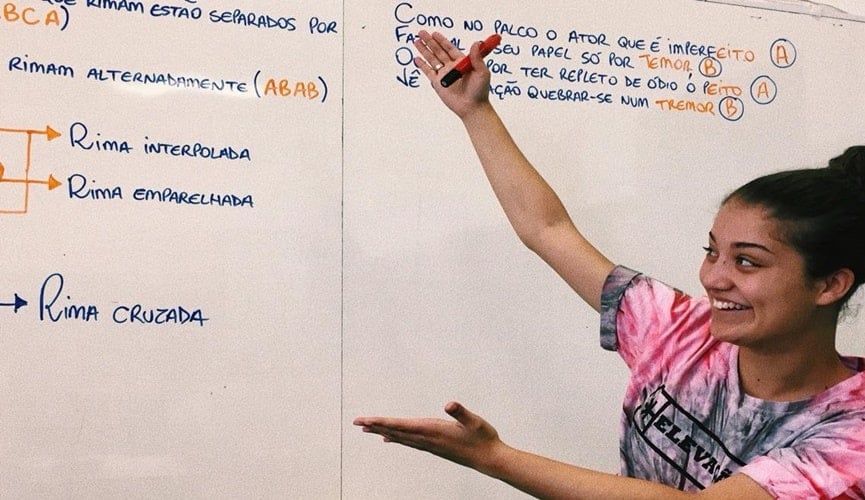 RIMAM ESTÃO SEPARADOS POR
BCA)
RIMAM ALTERNADAMENTE (ABAB)
RIMA INTERPOLADA
RIMA EMPARELHADA
RIMA CRUZADA
COMO NO PALCO O ATOR QUE É IMPERFEITO A
SEU PAPEL SÓ POR TEMOR B
POR TER REPLETO DE ÓDIO O PEITO A
VÊ QUEBRAR-SE NUM TREMOR B